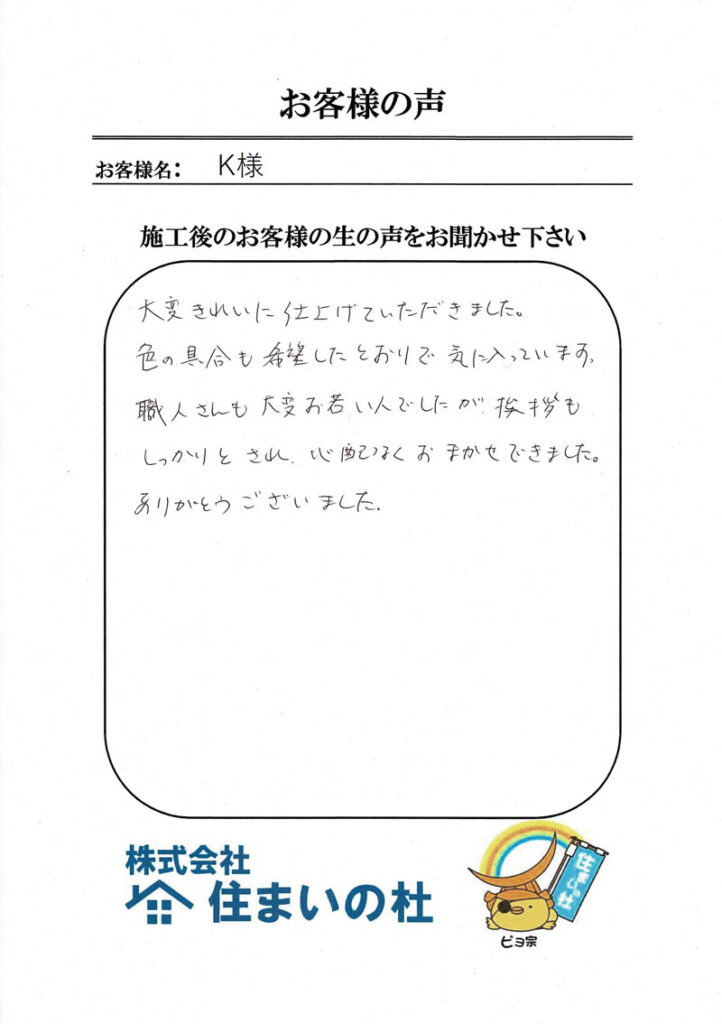 お客様の声
お客様名： K様
施工後のお客様の生の声をお聞かせ下さい
大変きれいに仕上げていただきました。
色の具合も希望したとおりで気に入っています。
職人さんも大変お若い人でしたが、挨拶も
しっかりとされ、心配なくおまかせできました。
ありがとうございました。
株式会社
住まいの杜
住まいの杜
ピヨ宗